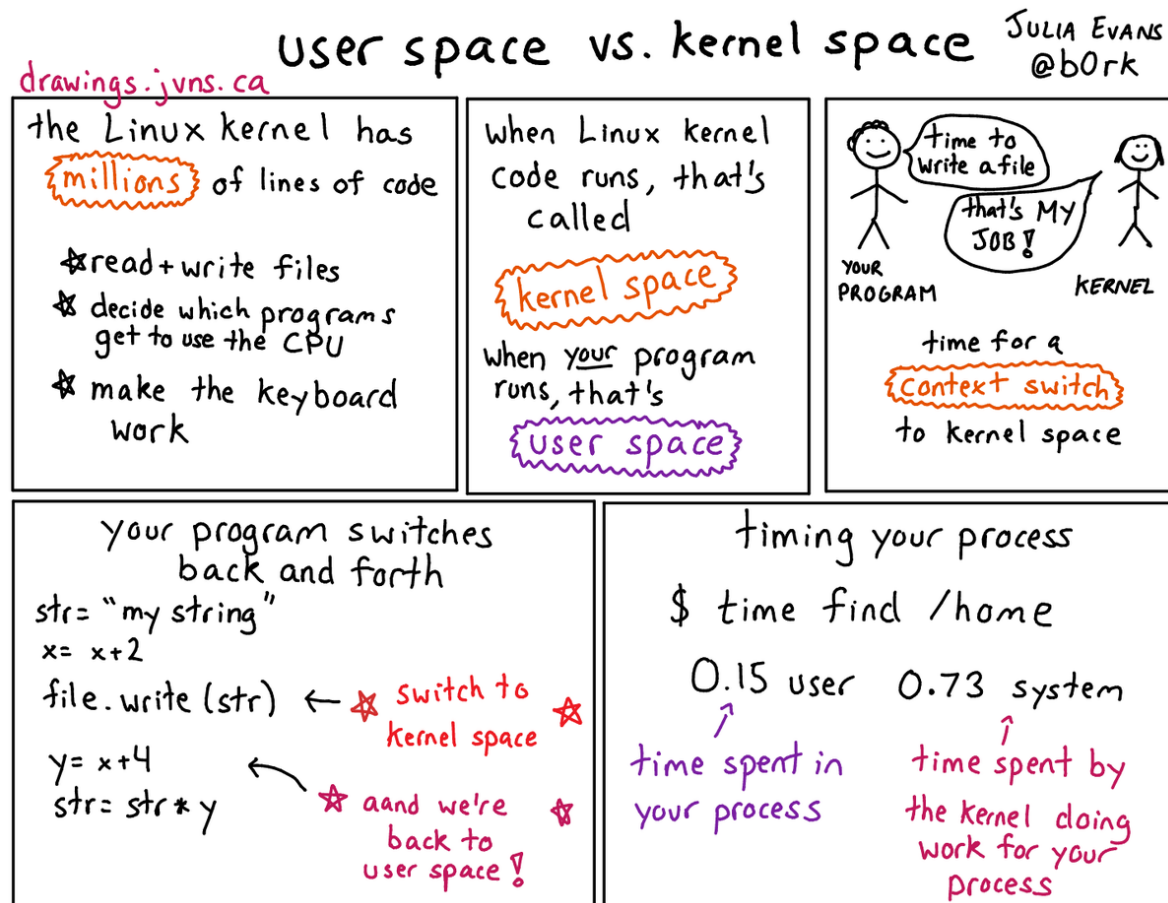 user space vs. kernel space
JULIA EVANS
@b0rk
drawings.jvns.ca
the Linux kernel has
millions of lines of code
☆ read+write files
☆ decide which programs
get to use the CPU
☆ make the keyboard
work
when Linux kernel
code runs, that's
called
kernel space
when your program
runs, that's
user space
time to
write a file
that's MY
JOB!
YOUR
PROGRAM
KERNEL
time for a
context switch
to kernel space
your program switches
back and forth
str= "my string"
x= x+2
file.write(str) ← ☆ switch to ☆
kernel space
y= x+4
str= str * y
☆ aand we're ☆
back to
user space!
timing your process
$ time find /home
0.15 user 0.73 system
time spent in
your process
time spent by
the kernel doing
work for your
process